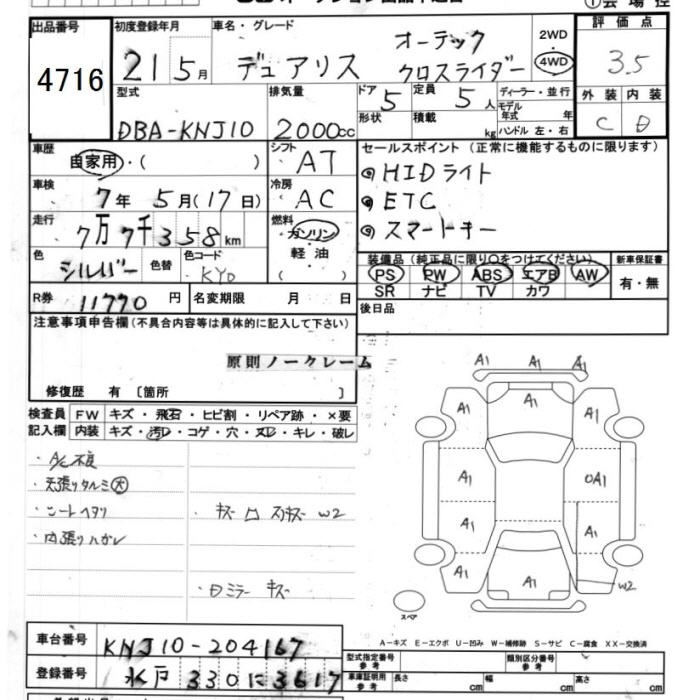 出品番号
4716
初度登録年月
21 5月
車名・グレード
デュアリス オーテック クロスライダー
2WD
4WD
評価点
3.5
外装 内装
C D
型式
DBA-KNJ10
排気量
2000cc
ドア
5
形状
定員
5人
積載
kg
ディーラー・並行
モデル年式 年
ハンドル 左・右
車歴
自家用・( )
シフト
AT
セールスポイント(正常に機能するものに限ります)
HIDライト
ETC
スマートキー
車検
7年 5月(17日)
冷房
AC
走行
7万7千358km
燃料
ガソリン
軽油
( )
色
シルバー
色替
色コード
KY0
装備品(純正品に限り○をつけてください)
PS PW ABS エアB AW
SR ナビ TV カワ
新車保証書
有・無
R券
11770円
名変期限 月 日
後日品
注意事項申告欄(不具合内容等は具体的に記入して下さい)
原則ノークレーム
修復歴 有 〔箇所 〕
検査員記入欄
FW キズ・飛石・ヒビ割・リペア跡・×要
内装 キズ・汚れ・コゲ・穴・ヌレ・キレ・破レ
・A/C不良
・天張りタルミ大
・シートヘタリ
・内張りハガレ
・キズ
W2
・ミラー キズ
A1 A1 A1
A1 A1 A1
A1 0A1
A1 A1
A1 A1
W2
スペア
A-キズ E-エクボ U-凹み W-補修跡 S-サビ C-腐食 XX-交換済
車台番号
KNJ10-204167
登録番号
水戸 330 に 3617
型式指定番号
参考
類別区分番号
参考
車庫証明用
参考
長さ cm
幅 cm
高さ cm